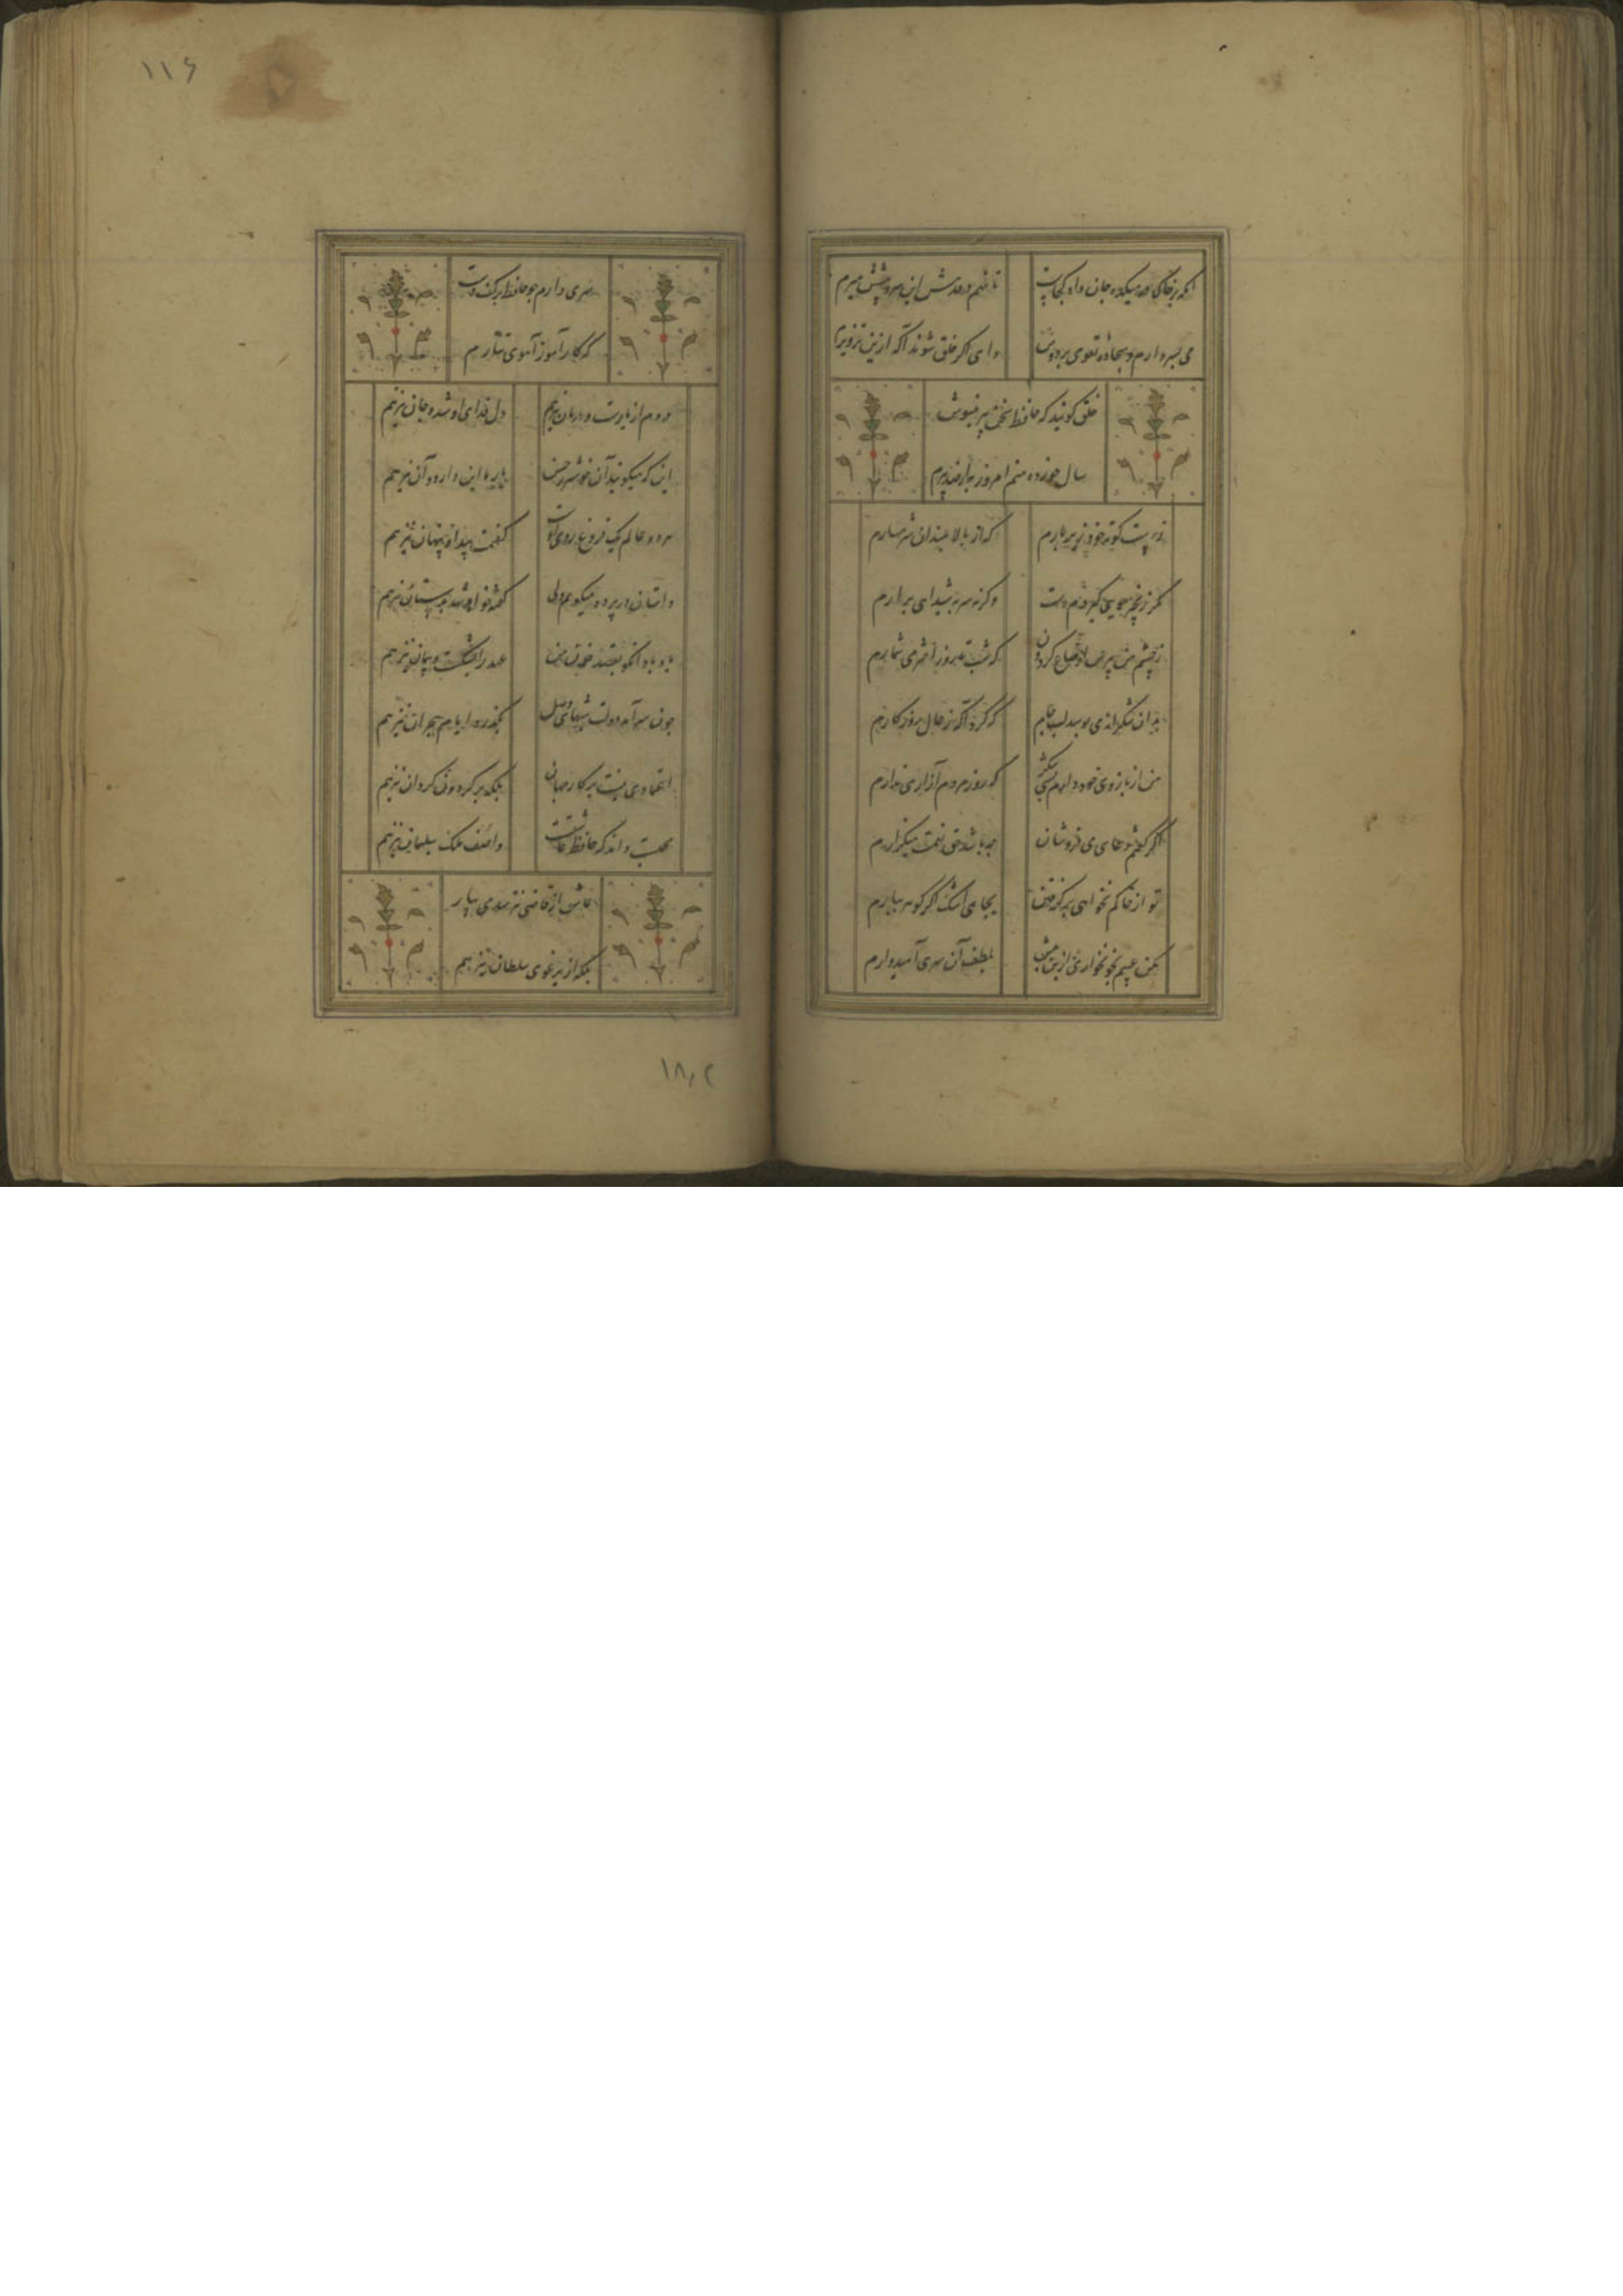 آنکه بر خاک در میکده جان داد کجاست
تا نهم در قدمش این سر و پیشش میرم
می بسر دارم و سجاده تقوی بر دوش
وای اگر خلق شوند آگه ازین تزویرم
خلق گویند که حافظ سخن پیر نیوش
سال خورده می امروز به از صد پیرم
ز دست کوته خود زیر بارم
که از بالا بلندان شرمسارم
مگر زنجیر مویی گیردم دست
وگرنه سر به شیدایی برآرم
ز چشم من بپرس اوضاع گردون
که شب تا روز اختر می شمارم
بدان شکرانه می بوسم لب جام
که کرد آگه ز حال روزگارم
من از بازوی خود دارم بسی شکر
که زور مردم آزاری ندارم
اگر گفتم دعای می فروشان
چه باشد حق نعمت میگزارم
تو از خاکم نخواهی برگرفتن
بجای اشک اگر گوهر ببارم
مکن عیبم بخونخواری ازین دشت
سری دارم چو حافظ
که کار آموز آهوی تتارم
دردم از یارست و درمان نیز هم
دل فدای او شد و جان نیز هم
این که میگویند آن خوشتر ز حسن
یار ما این دارد و آن نیز هم
هر دو عالم یک فروغ روی اوست
گفتمت پیدا و پنهان نیز هم
داستان در پرده میگویم ولی
گفته خواهد شد بدستان نیز هم
یاد باد آنکو بقصد خون من
عهد را بشکست و پیمان نیز هم
چون سر آمد دولت شبهای وصل
بگذرد ایام هجران نیز هم
اعتمادی نیست بر کار جهان
بلکه بر گردون گردان نیز هم
محتسب داند که حافظ عاشقست
و آصف ملک سلیمان نیز هم
عاشق از قاضی نترسد می بیار
بلکه از یرغوی سلطان نیز هم
۱۱۶